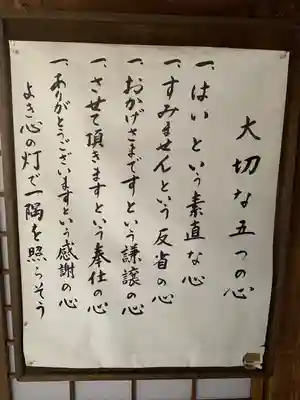 大切な五つの心
一、はい という素直な心
一、すみませんという反省の心
一、おかげさまですという謙譲の心
一、させて頂きますという奉仕の心
一、ありがとうございますという感謝の心
よき心の灯で一隅を照らそう